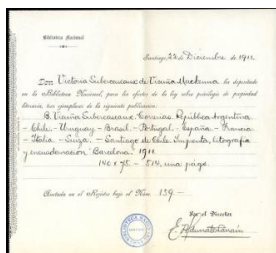 Biblioteca Nacional
Santiago, 22 de Diciembre de 1911
Don Victoria Subercaseaux de Vicuña Mackenna ha depositado
en la Biblioteca Nacional, para los efectos de la ley sobre privilegio de propiedad
literaria, tres ejemplares de la siguiente publicacion:
B. Vicuña Subercaseaux. Correrías. República Argentina
- Chile - Uruguay - Brasil - Portugal - España - Francia
- Italia - Suiza. - Santiago de Chile. Imprenta, litografía
y encuadernacion Barcelona. 1911
140 x 75 - 514, una pájs.
Anotada en el Rejistro bajo el Núm. 139 -
Por el Director